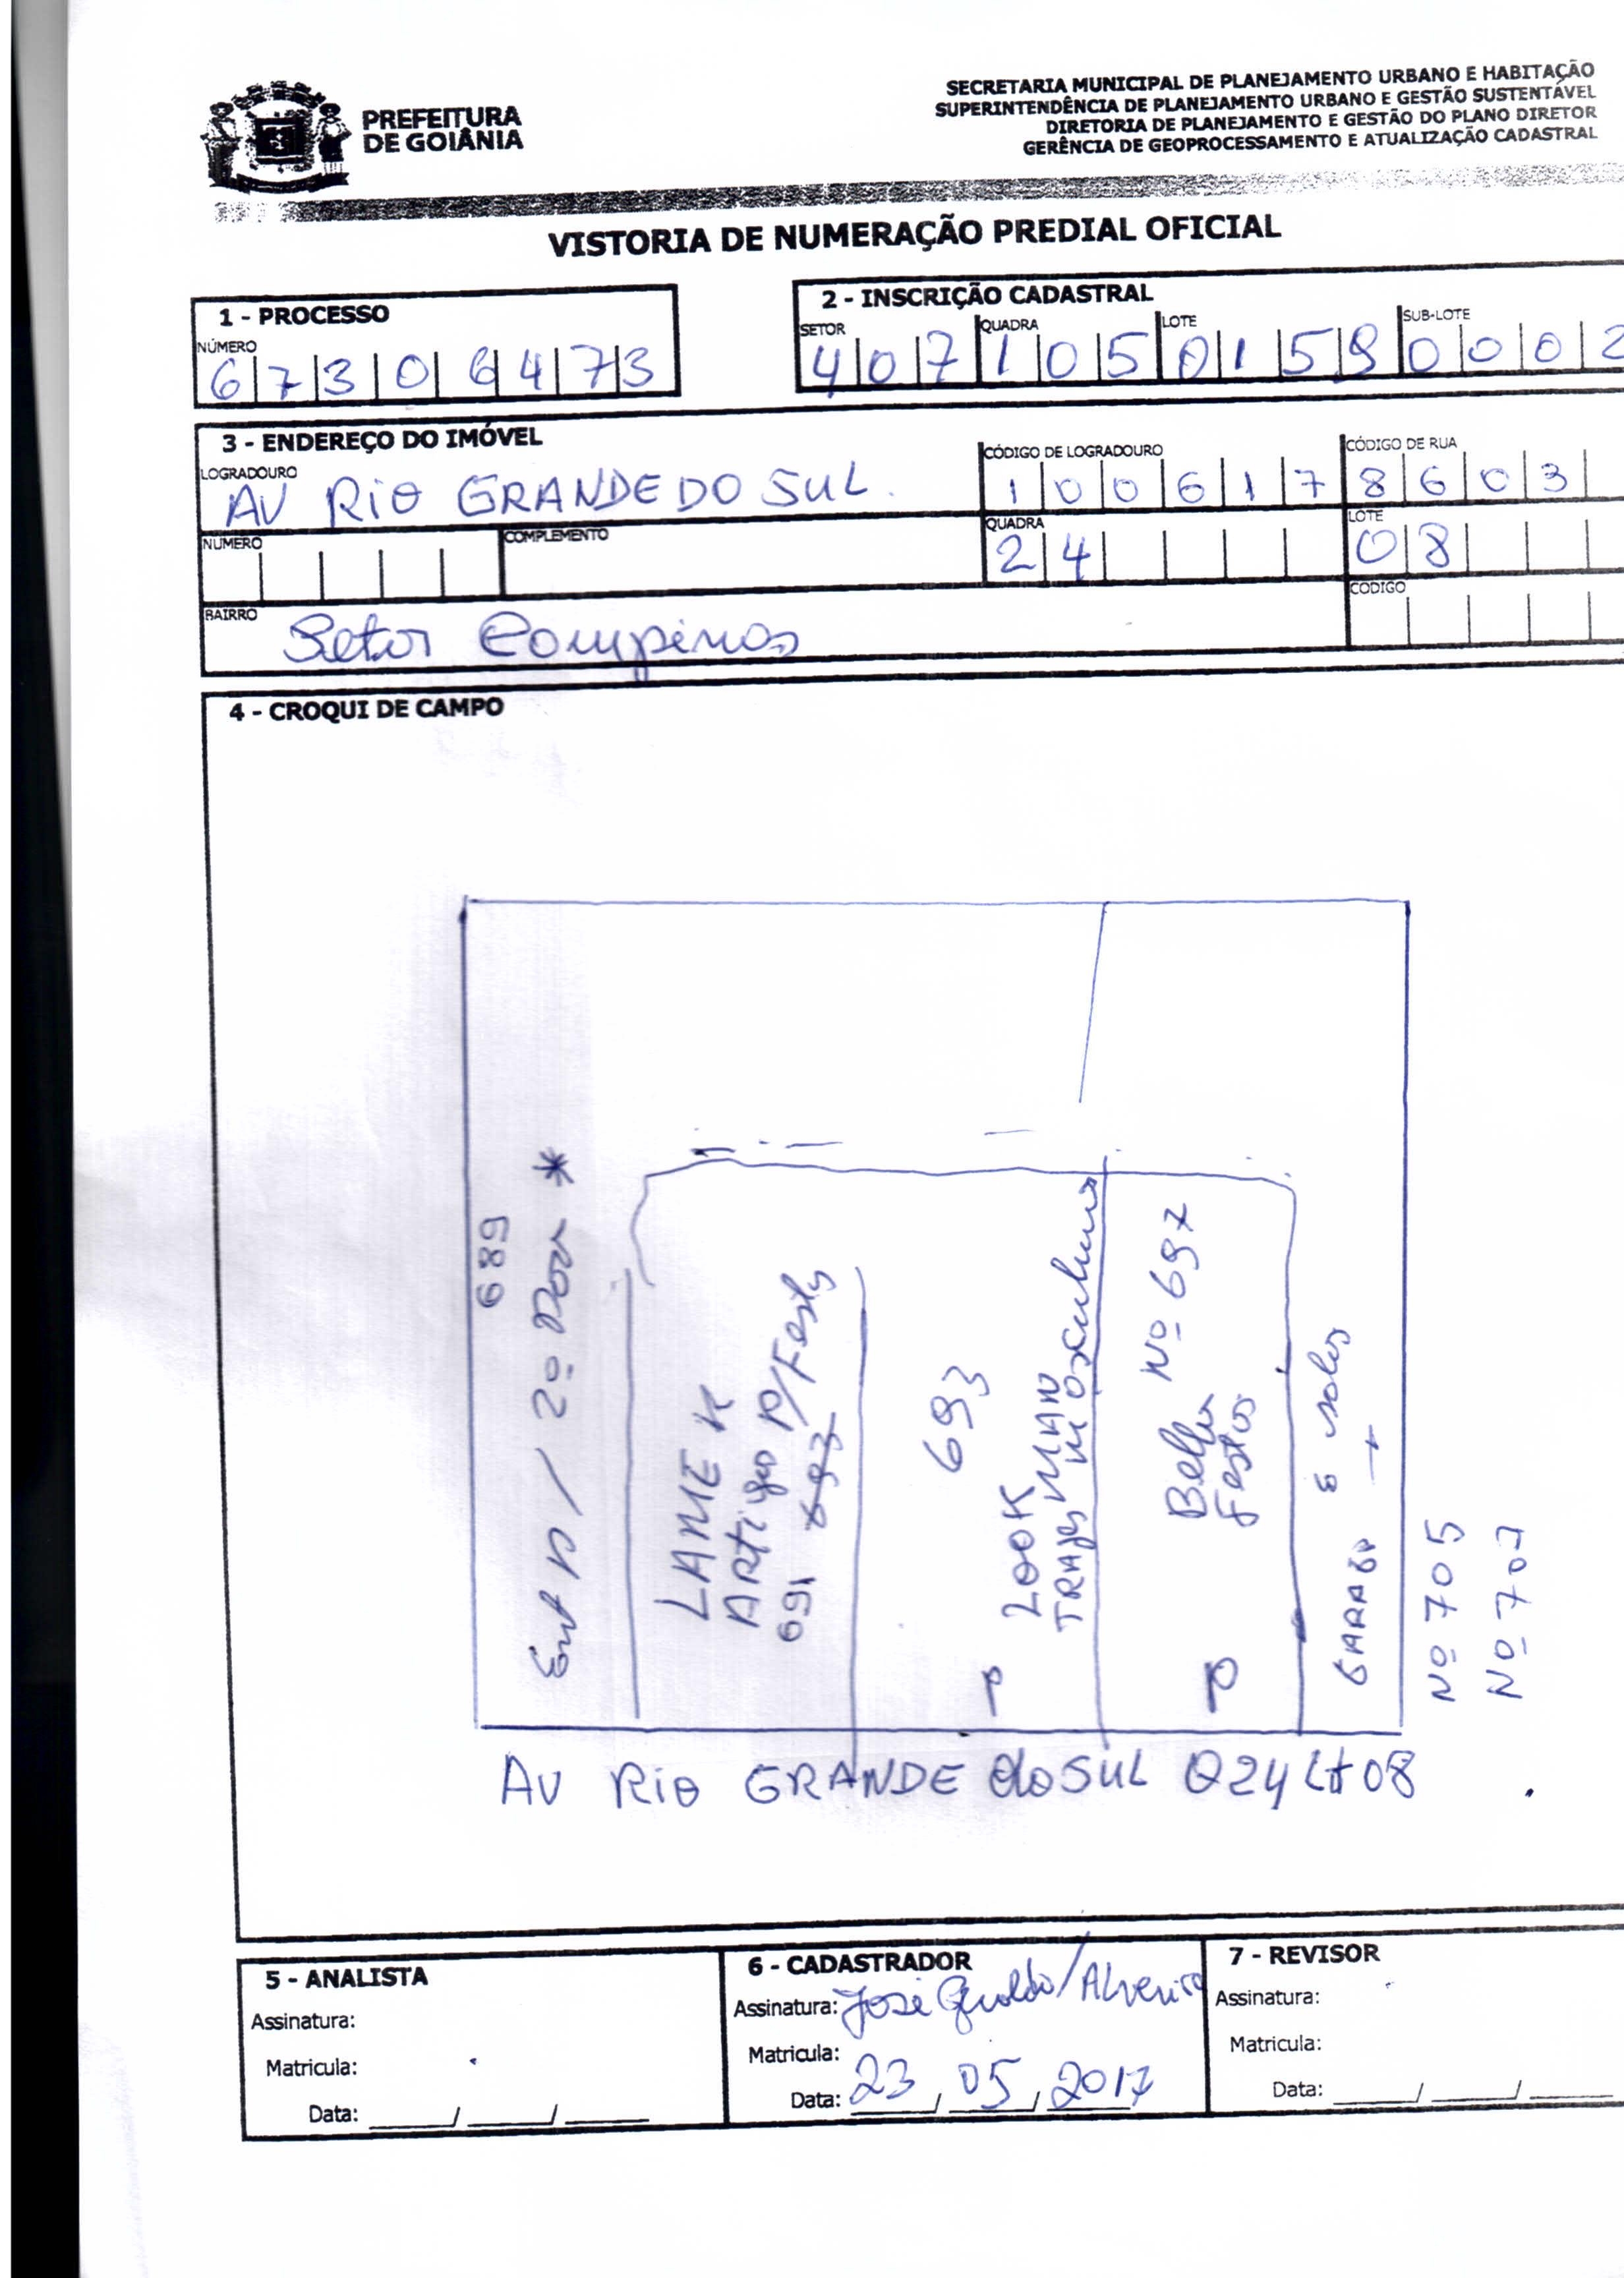 PREFEITURA
DE GOIÂNIA
SECRETARIA MUNICIPAL DE PLANEJAMENTO URBANO E HABITAÇÃO
SUPERINTENDÊNCIA DE PLANEJAMENTO URBANO E GESTÃO SUSTENTÁVEL
DIRETORIA DE PLANEJAMENTO E GESTÃO DO PLANO DIRETOR
GERÊNCIA DE GEOPROCESSAMENTO E ATUALIZAÇÃO CADASTRAL
VISTORIA DE NUMERAÇÃO PREDIAL OFICIAL
1 - PROCESSO
NÚMERO
6 7 3 0 6 4 7 3
2 - INSCRIÇÃO CADASTRAL
SETOR QUADRA LOTE SUB-LOTE
4 0 7 1 0 5 0 1 5 9 0 0 0 2
3 - ENDEREÇO DO IMÓVEL
LOGRADOURO
AV RIO GRANDE DO SUL.
CÓDIGO DE LOGRADOURO
1 0 0 6 1 7
CÓDIGO DE RUA
8 6 0 3
NÚMERO
COMPLEMENTO
QUADRA
2 4
LOTE
0 8
BAIRRO
Setor Campinas
CÓDIGO
4 - CROQUI DE CAMPO
689
Ent p/ 2º Pav *
LAME K
Artigos P/Festas
691 693
693
LOOK MANO
TRAJES MASCULINO
P
Nº 697
Bella
festas
P
5 salas
Nº 705
Nº 707
AV RIO GRANDE do SUL Q24 Lt 08
5 - ANALISTA
Assinatura:
Matricula:
Data: ____/____/____
6 - CADASTRADOR
Assinatura: José Geraldo/
Matricula:
Data: 23/05/2017
7 - REVISOR
Assinatura:
Matricula:
Data: ____/____/____